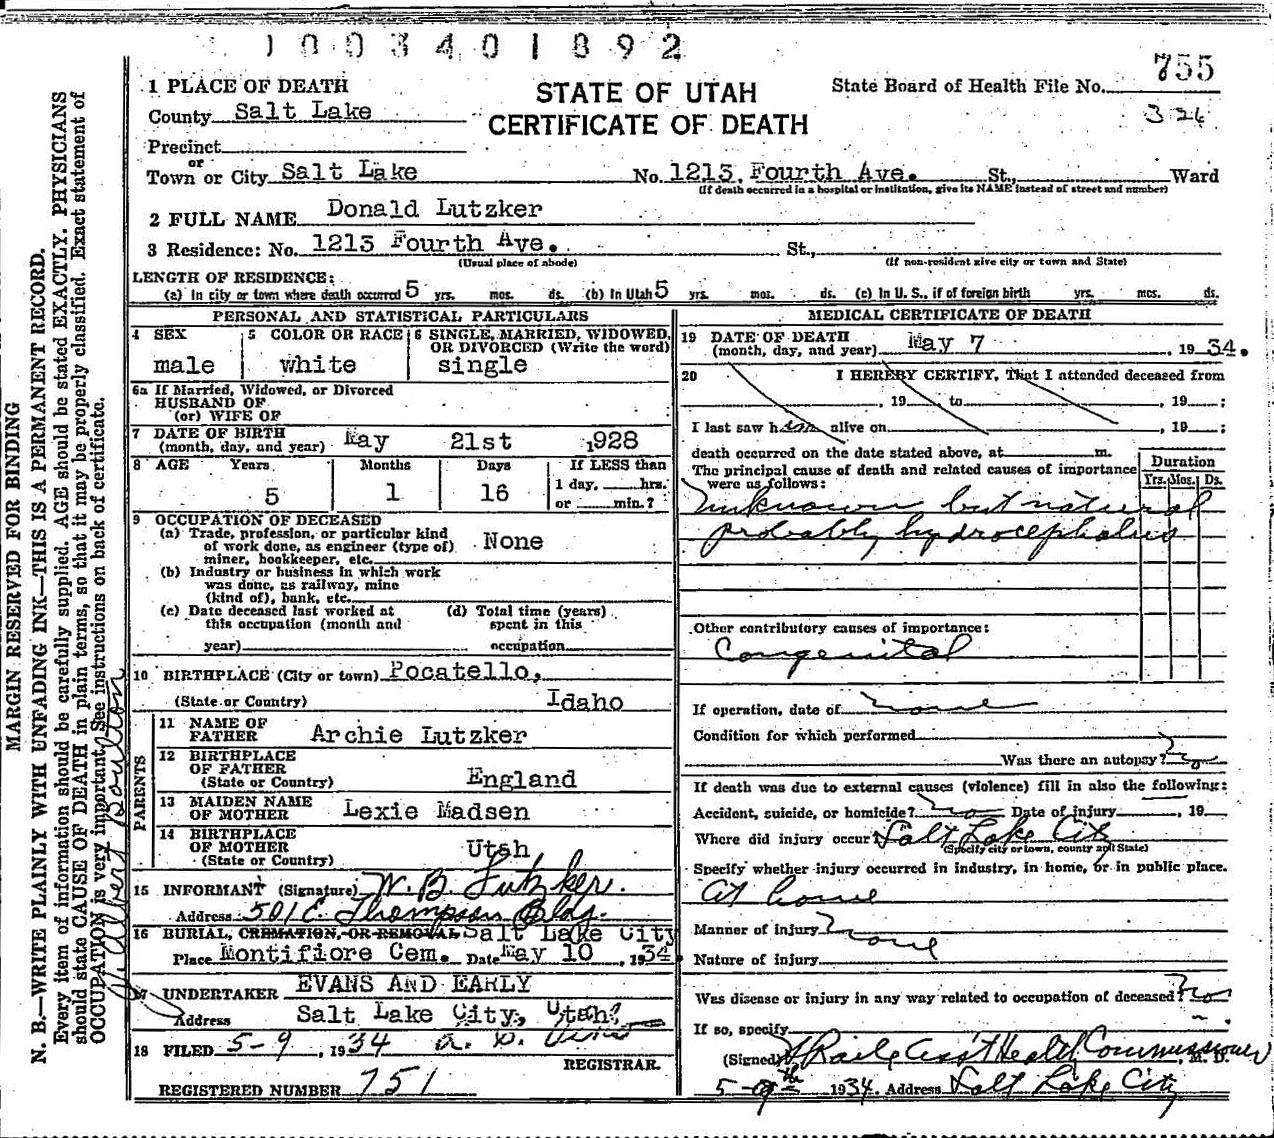 1003401892
755
1 PLACE OF DEATH
STATE OF UTAH
State Board of Health File No.
County Salt Lake
CERTIFICATE OF DEATH
326
Precinct
or
Town or City Salt Lake No. 1213 Fourth Ave. St., Ward
(If death occurred in a hospital or institution, give its NAME instead of street and number)
2 FULL NAME Donald Lutzker
3 Residence: No. 1213 Fourth Ave. St.,
(Usual place of abode) (If non-resident give city or town and State)
LENGTH OF RESIDENCE:
(a) In city or town where death occurred 5 yrs. mos. ds. (b) In Utah 5 yrs. mos. ds. (c) In U. S., if of foreign birth yrs. mos. ds.
PERSONAL AND STATISTICAL PARTICULARS
4 SEX
male
5 COLOR OR RACE
white
6 SINGLE, MARRIED, WIDOWED, OR DIVORCED (Write the word)
single
6a If Married, Widowed, or Divorced
HUSBAND OF
(or) WIFE OF
7 DATE OF BIRTH
(month, day, and year) May 21st 1928
8 AGE Years Months Days If LESS than
5 1 16 1 day, hrs.
or min.?
9 OCCUPATION OF DECEASED
(a) Trade, profession, or particular kind
of work done, as engineer (type of)
miner, bookkeeper, etc. None
(b) Industry or business in which work
was done, as railway, mine
(kind of), bank, etc.
(c) Date deceased last worked at
this occupation (month and
year)
(d) Total time (years)
spent in this
occupation
10 BIRTHPLACE (City or town) Pocatello,
(State or Country) Idaho
PARENTS
11 NAME OF
FATHER Archie Lutzker
12 BIRTHPLACE
OF FATHER
(State or Country) England
13 MAIDEN NAME
OF MOTHER Lexie Madsen
14 BIRTHPLACE
OF MOTHER
(State or Country) Utah
15 INFORMANT (Signature) W. B. Lutzker.
Address 501 E. Thompson Bldg.
16 BURIAL, CREMATION, OR REMOVAL Salt Lake City
Place Montifiore Cem. Date May 10, 1934.
17 UNDERTAKER EVANS AND EARLY
Address Salt Lake City, Utah.
18 FILED 5-9, 1934
REGISTRAR.
REGISTERED NUMBER 751
MEDICAL CERTIFICATE OF DEATH
19 DATE OF DEATH
(month, day, and year) May 7, 1934.
20 I HEREBY CERTIFY, That I attended deceased from
, 19 to , 19 ;
I last saw him alive on , 19 ;
death occurred on the date stated above, at m.
The principal cause of death and related causes of importance
were as follows:
Duration
Yrs. Mos. Ds.
unknown but natural
probably hydrocephalus
Other contributory causes of importance:
Congenital
If operation, date of none
Condition for which performed
Was there an autopsy? no
If death was due to external causes (violence) fill in also the following:
Accident, suicide, or homicide? no Date of injury , 19
Where did injury occur? Salt Lake City
(Specify city or town, county and State)
Specify whether injury occurred in industry, in home, or in public place.
at home
Manner of injury none
Nature of injury
Was disease or injury in any way related to occupation of deceased? no
If so, specify
(Signed) Asst Health Commissioner, M. D.
5-9th 1934. Address Salt Lake City
MARGIN RESERVED FOR BINDING
N. B.—WRITE PLAINLY WITH UNFADING INK—THIS IS A PERMANENT RECORD.
Every item of information should be carefully supplied. AGE should be stated EXACTLY. PHYSICIANS
should state CAUSE OF DEATH in plain terms, so that it may be properly classified. Exact statement of
OCCUPATION is very important. See instructions on back of certificate.